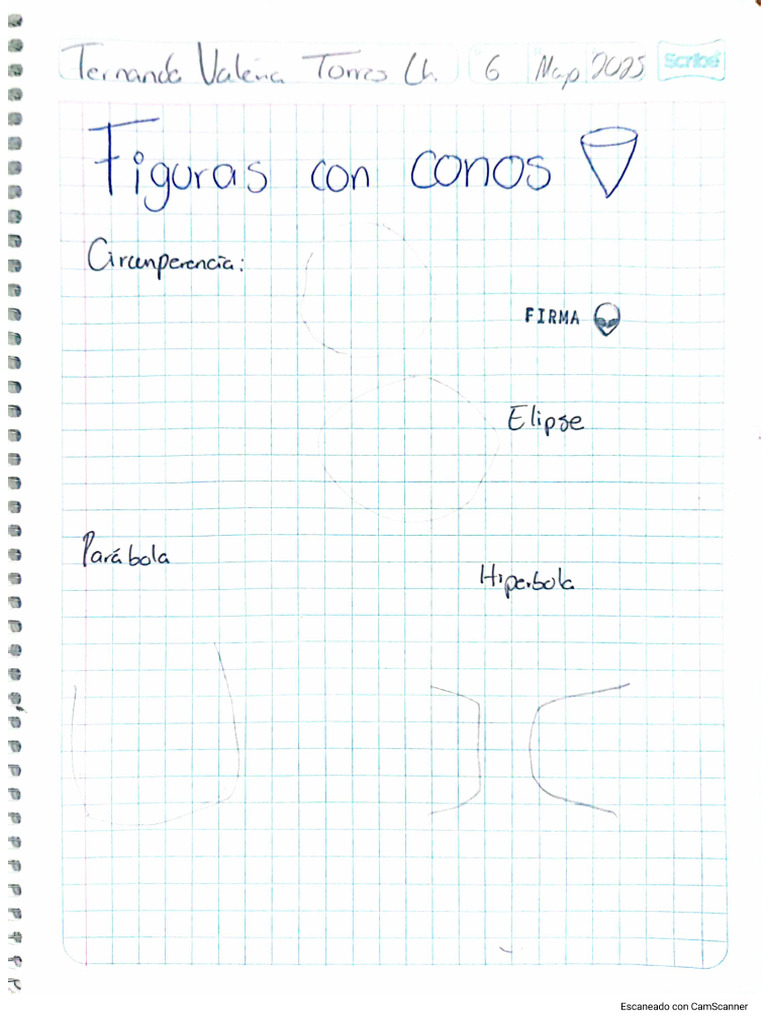 Fernanda Valeria Torres Ch. 6 May 2025 Scribe
Figuras con conos
Circunperencia:
FIRMA
Elipse
Parábola
Hiperbola
Escaneado con CamScanner